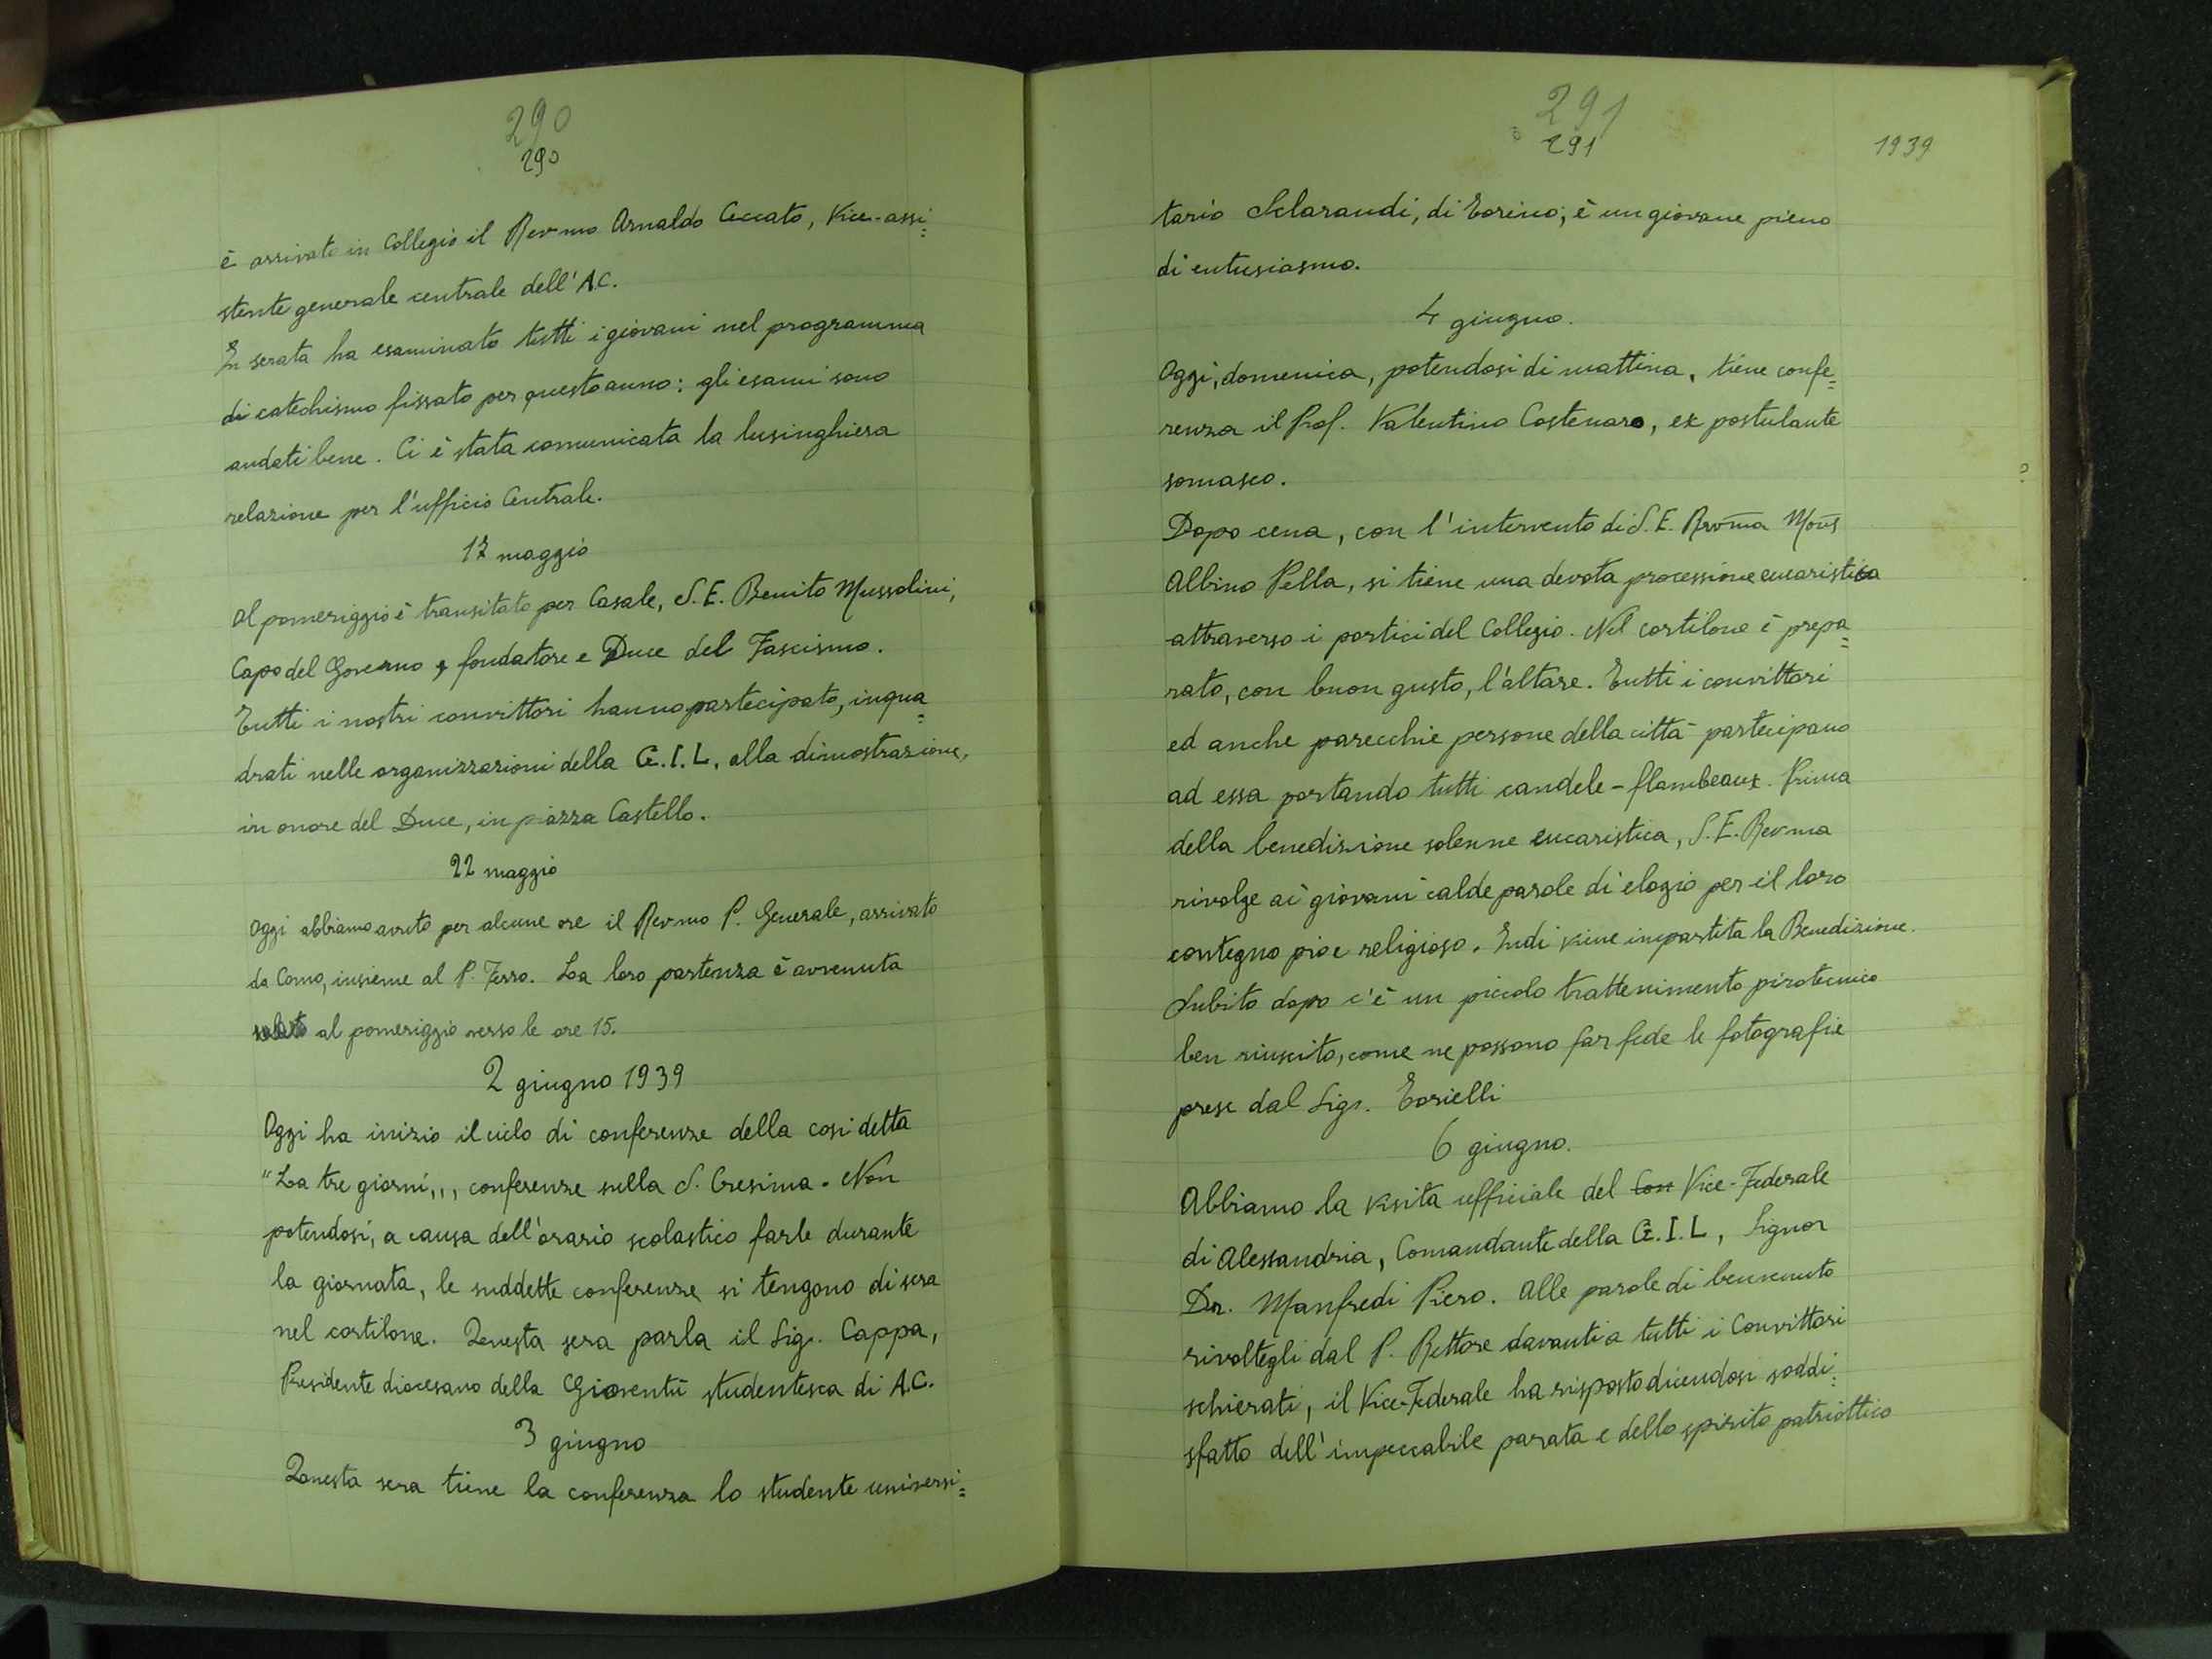 290
290
è arrivato in Collegio il Rev.mo Arnaldo Ceccato, Vice-assi=
stente generale centrale dell'A.C.
In serata ha esaminato tutti i giovani nel programma
di catechismo fissato per questo anno: gli esami sono
andati bene. Ci è stata comunicata la lusinghiera
relazione per l'ufficio Centrale.
17 maggio
Al pomeriggio è transitato per Casale, S.E. Benito Mussolini,
Capo del Governo, fondatore e Duce del Fascismo.
Tutti i nostri convittori hanno partecipato, inqua=
drati nelle organizzazioni della G.I.L. alla dimostrazione,
in onore del Duce, in piazza Castello.
22 maggio
Oggi abbiamo avuto per alcune ore il Rev.mo P. Generale, arrivato
da Como, insieme al P. Ferro. La loro partenza è avvenuta
al pomeriggio verso le ore 15.
2 giugno 1939
Oggi ha inizio il ciclo di conferenze della cosi detta
"La tre giorni,,, conferenze sulla S. Cresima. Non
potendosi, a causa dell'orario scolastico farle durante
la giornata, le suddette conferenze si tengono di sera
nel cortilone. Questa sera parla il Sig. Cappa,
Presidente diocesano della Gioventù studentesca di A.C.
3 giugno
Questa sera tiene la conferenza lo studente universi=
291
291
1939
tario Sclarandi, di Torino; è un giovane pieno
di entusiasmo.
4 giugno.
Oggi, domenica, potendosi di mattina, tiene confe=
renza il Prof. Valentino Costenaro, ex postulante
somasco.
Dopo cena, con l'intervento di S.E. Rev̄ma Moñs
Albino Pella, si tiene una devota processione eucaristica
attraverso i portici del Collegio. Nel cortilone è prepa=
rato, con buon gusto, l'altare. Tutti i convittori
ed anche parecchie persone della città partecipano
ad essa portando tutti candele-flambeaux. Prima
della benedizione solenne eucaristica, S.E. Rev.ma
rivolge ai giovani calde parole di elogio per il loro
contegno pio e religioso. Indi viene impartita la Benedizione.
Subito dopo c'è un piccolo trattenimento pirotecnico
ben riuscito, come ne possono far fede le fotografie
prese dal Sig. Torielli
6 giugno.
Abbiamo la visita ufficiale del Con Vice-Federale
di Alessandria, Comandante della G.I.L, Signor
Dr. Manfredi Piero. Alle parole di benvenuto
rivoltegli dal P. Rettore davanti a tutti i Convittori
schierati, il Vice-Federale ha risposto dicendosi soddi=
sfatto dell'impeccabile parata e dello spirito patriottico